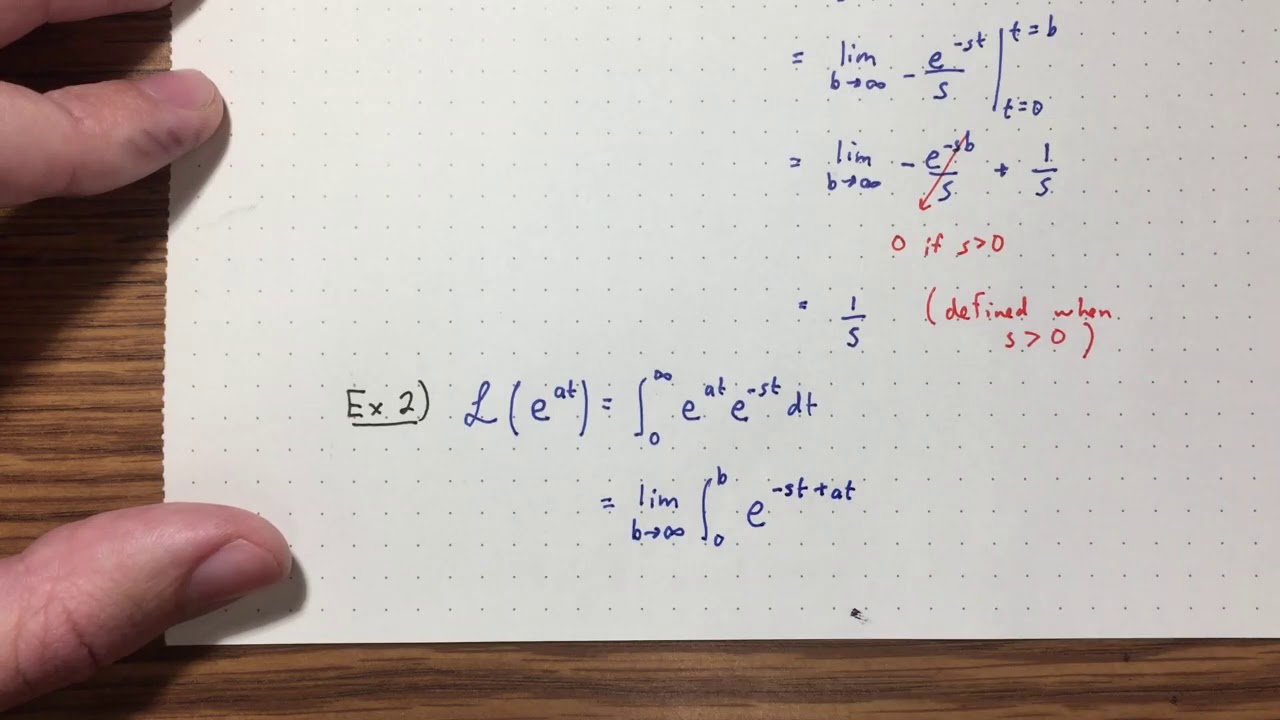 = lim b→∞ - e^-st / s | t=b t=0
= lim b→∞ - e^-sb / s + 1/s
0 if s>0
= 1/s (defined when
s>0)
Ex 2) ℒ(e^at) = ∫_0^∞ e^at e^-st dt
= lim b→∞ ∫_0^b e^-st+at